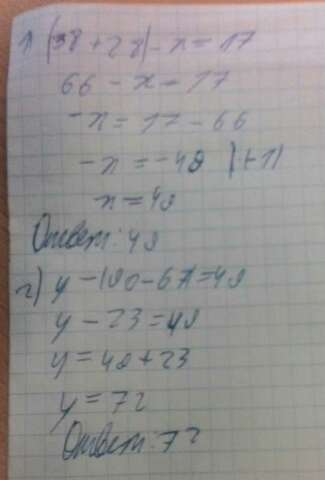 1) (38 + 28) - x = 17
66 - x = 17
-x = 17 - 66
-x = -49
x = 49
Ответ: 49
2) y - 190 - 67 = 49
y - 23 = 49
y = 49 + 23
y = 72
Ответ: 72